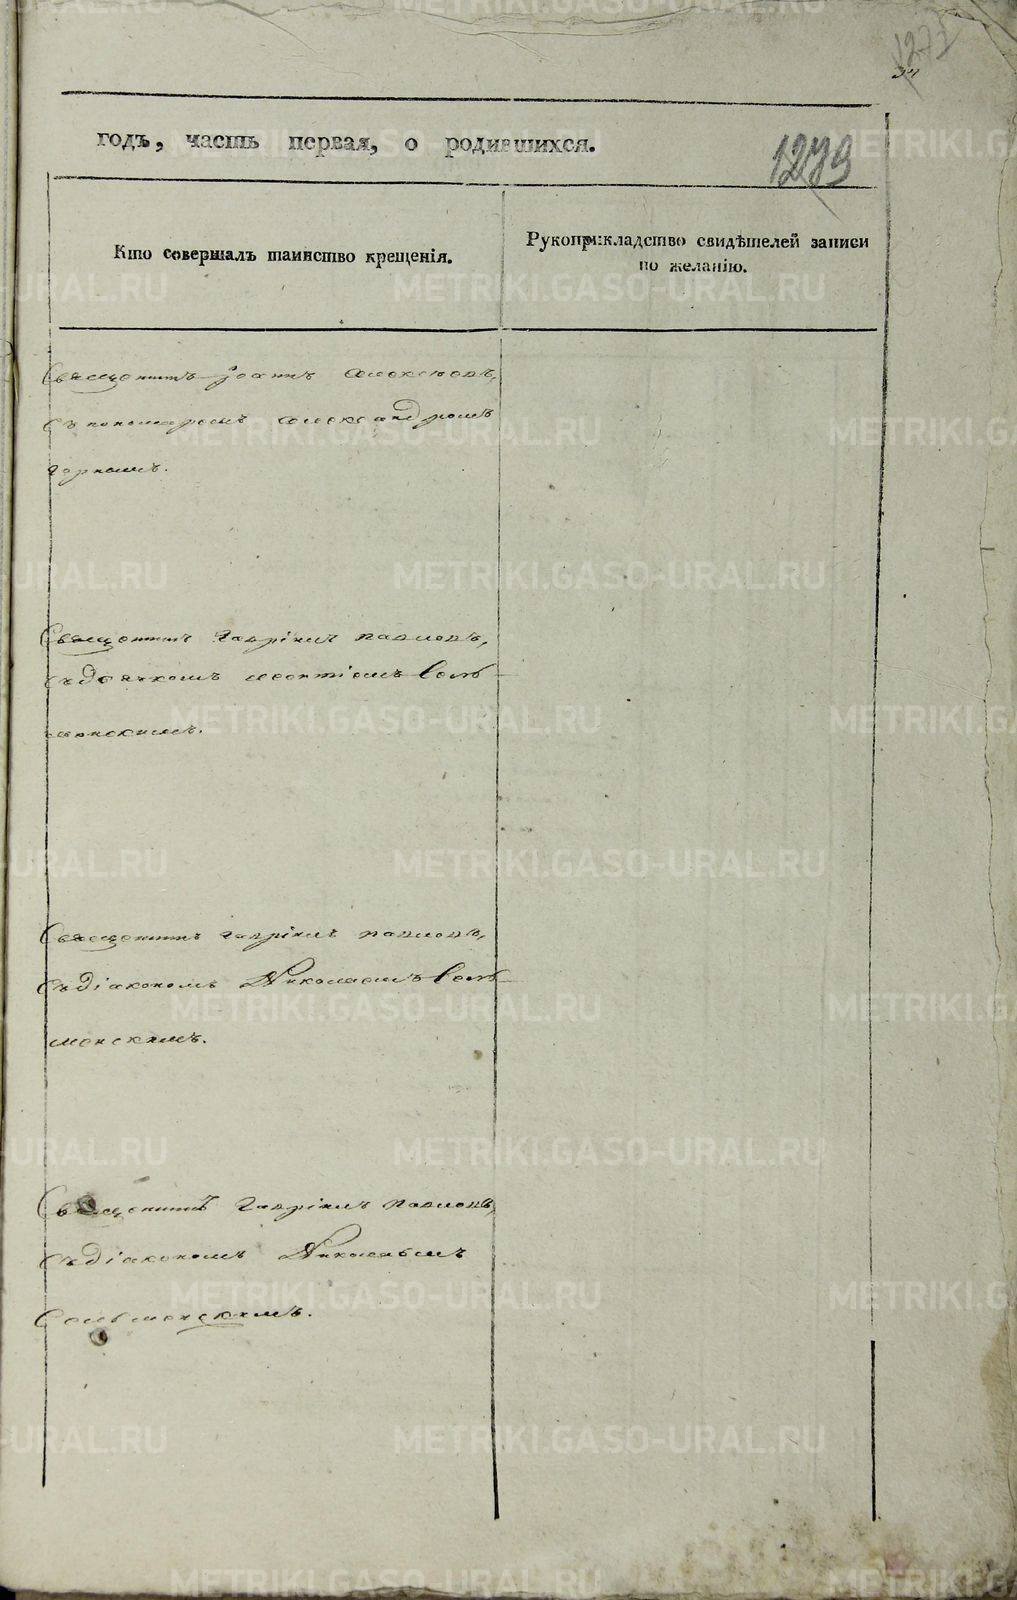 1277
34
годъ, часть первая, о родившихся.
1279
Кто совершалъ таинство крещенія.
Рукоприкладство свидѣтелей записи
по желанію.
Священникъ Іоаннъ Алексѣевъ,
съ пономаремъ Александромъ
Горнымъ.
Священникъ Гавріилъ Павловъ,
съ дьячкомъ Леонтіемъ Сель-
менскимъ.
Священникъ Гавріилъ Павловъ,
съ діакономъ Николаемъ Сель-
менскимъ.
Священникъ Гавріилъ Павловъ,
съ діакономъ Николаемъ
Сельменскимъ.
METRIKI.GASO-URAL.RU